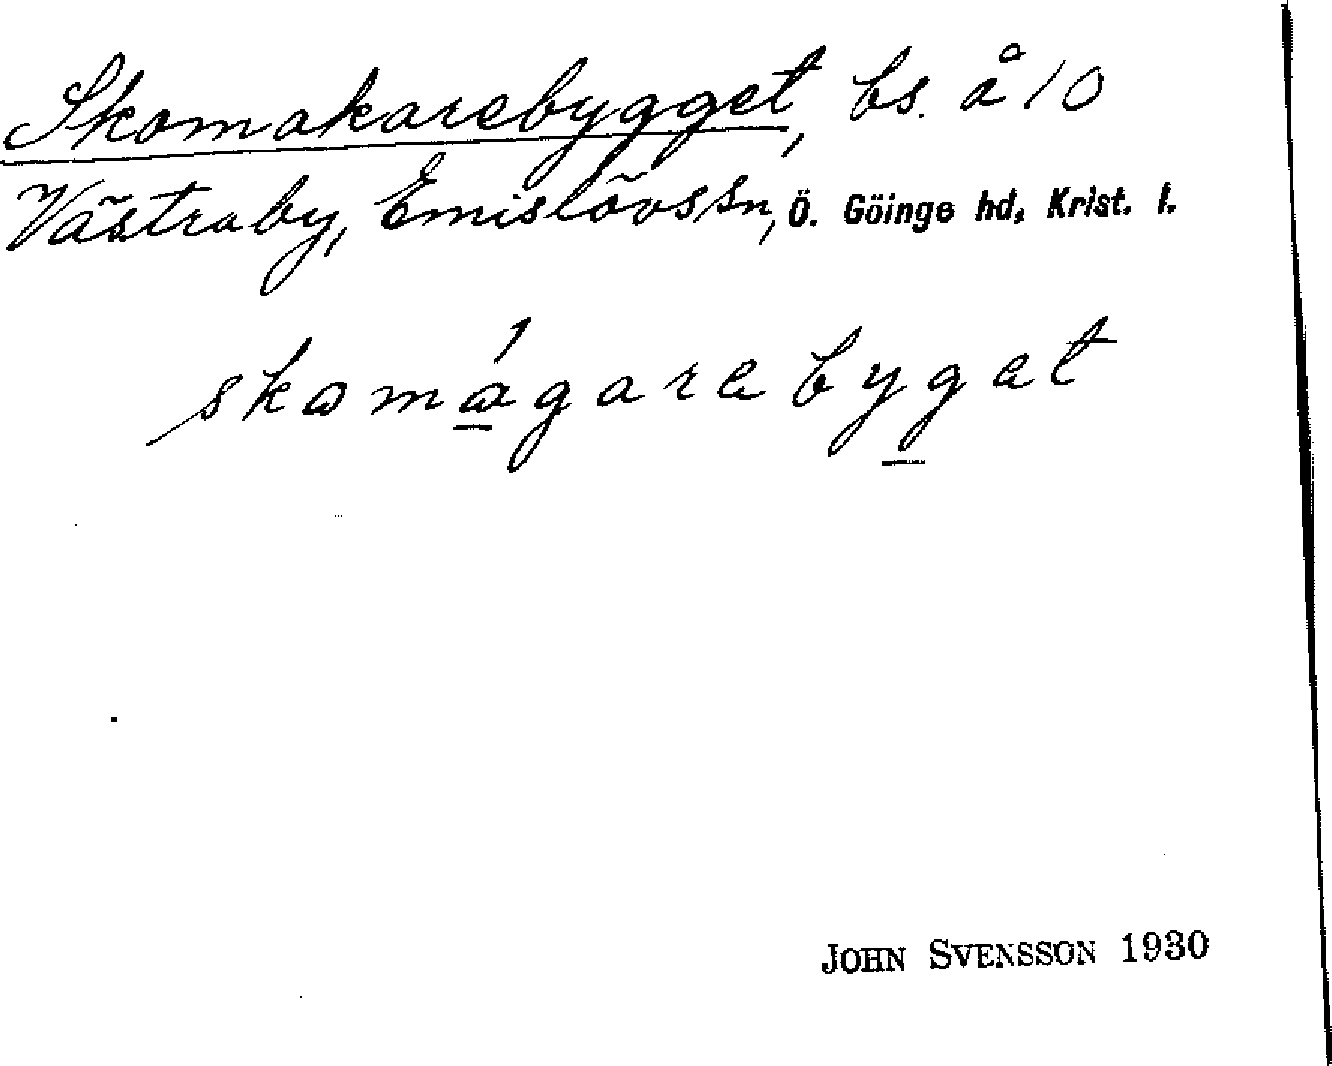 Skomakarebygget, bs. å 10
Västraby, Emislövs sn, Ö. Göinge hd, Krist. l.
skomágarebyget
JOHN SVENSSON 1930